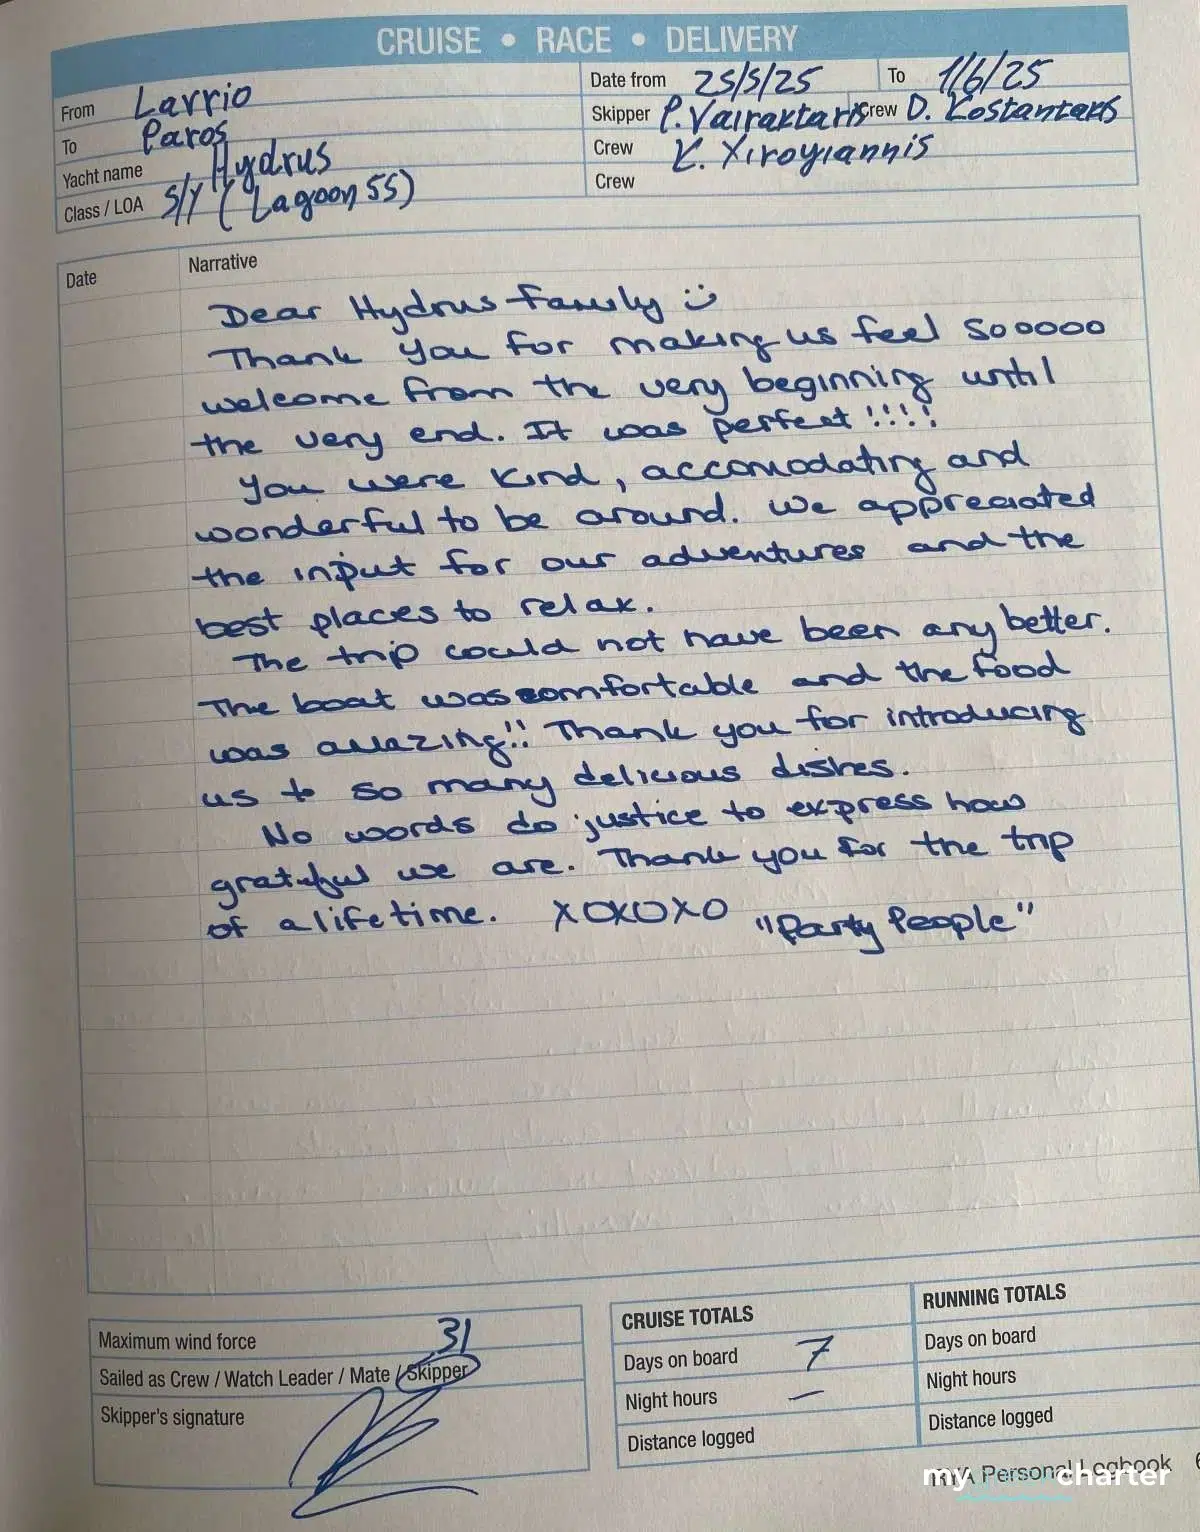 CRUISE • RACE • DELIVERY
From Lavrio
To Paros
Yacht name Hydrus
Class / LOA S/Y (Lagoon 55)
Date from 25/5/25 To 1/6/25
Skipper P. Vairaktaris Crew D. Kostantakis
Crew K. Xirogiannis
Crew
Date Narrative
Dear Hydrus family
Thank you for making us feel sooooo
welcome from the very beginning until
the very end. It was perfect!!!!
You were kind, accomodating and
wonderful to be around. We appreciated
the input for our adventures and the
best places to relax.
The trip could not have been any better.
The boat was comfortable and the food
was amazing!! Thank you for introducing
us to so many delicious dishes.
No words do justice to express how
grateful we are. Thank you for the trip
of a lifetime. XOXOXO "Party People"
Maximum wind force 31
Sailed as Crew / Watch Leader / Mate / Skipper
Skipper's signature
CRUISE TOTALS
Days on board 7
Night hours —
Distance logged
RUNNING TOTALS
Days on board
Night hours
Distance logged
RYA Personal Logbook 6
my charter